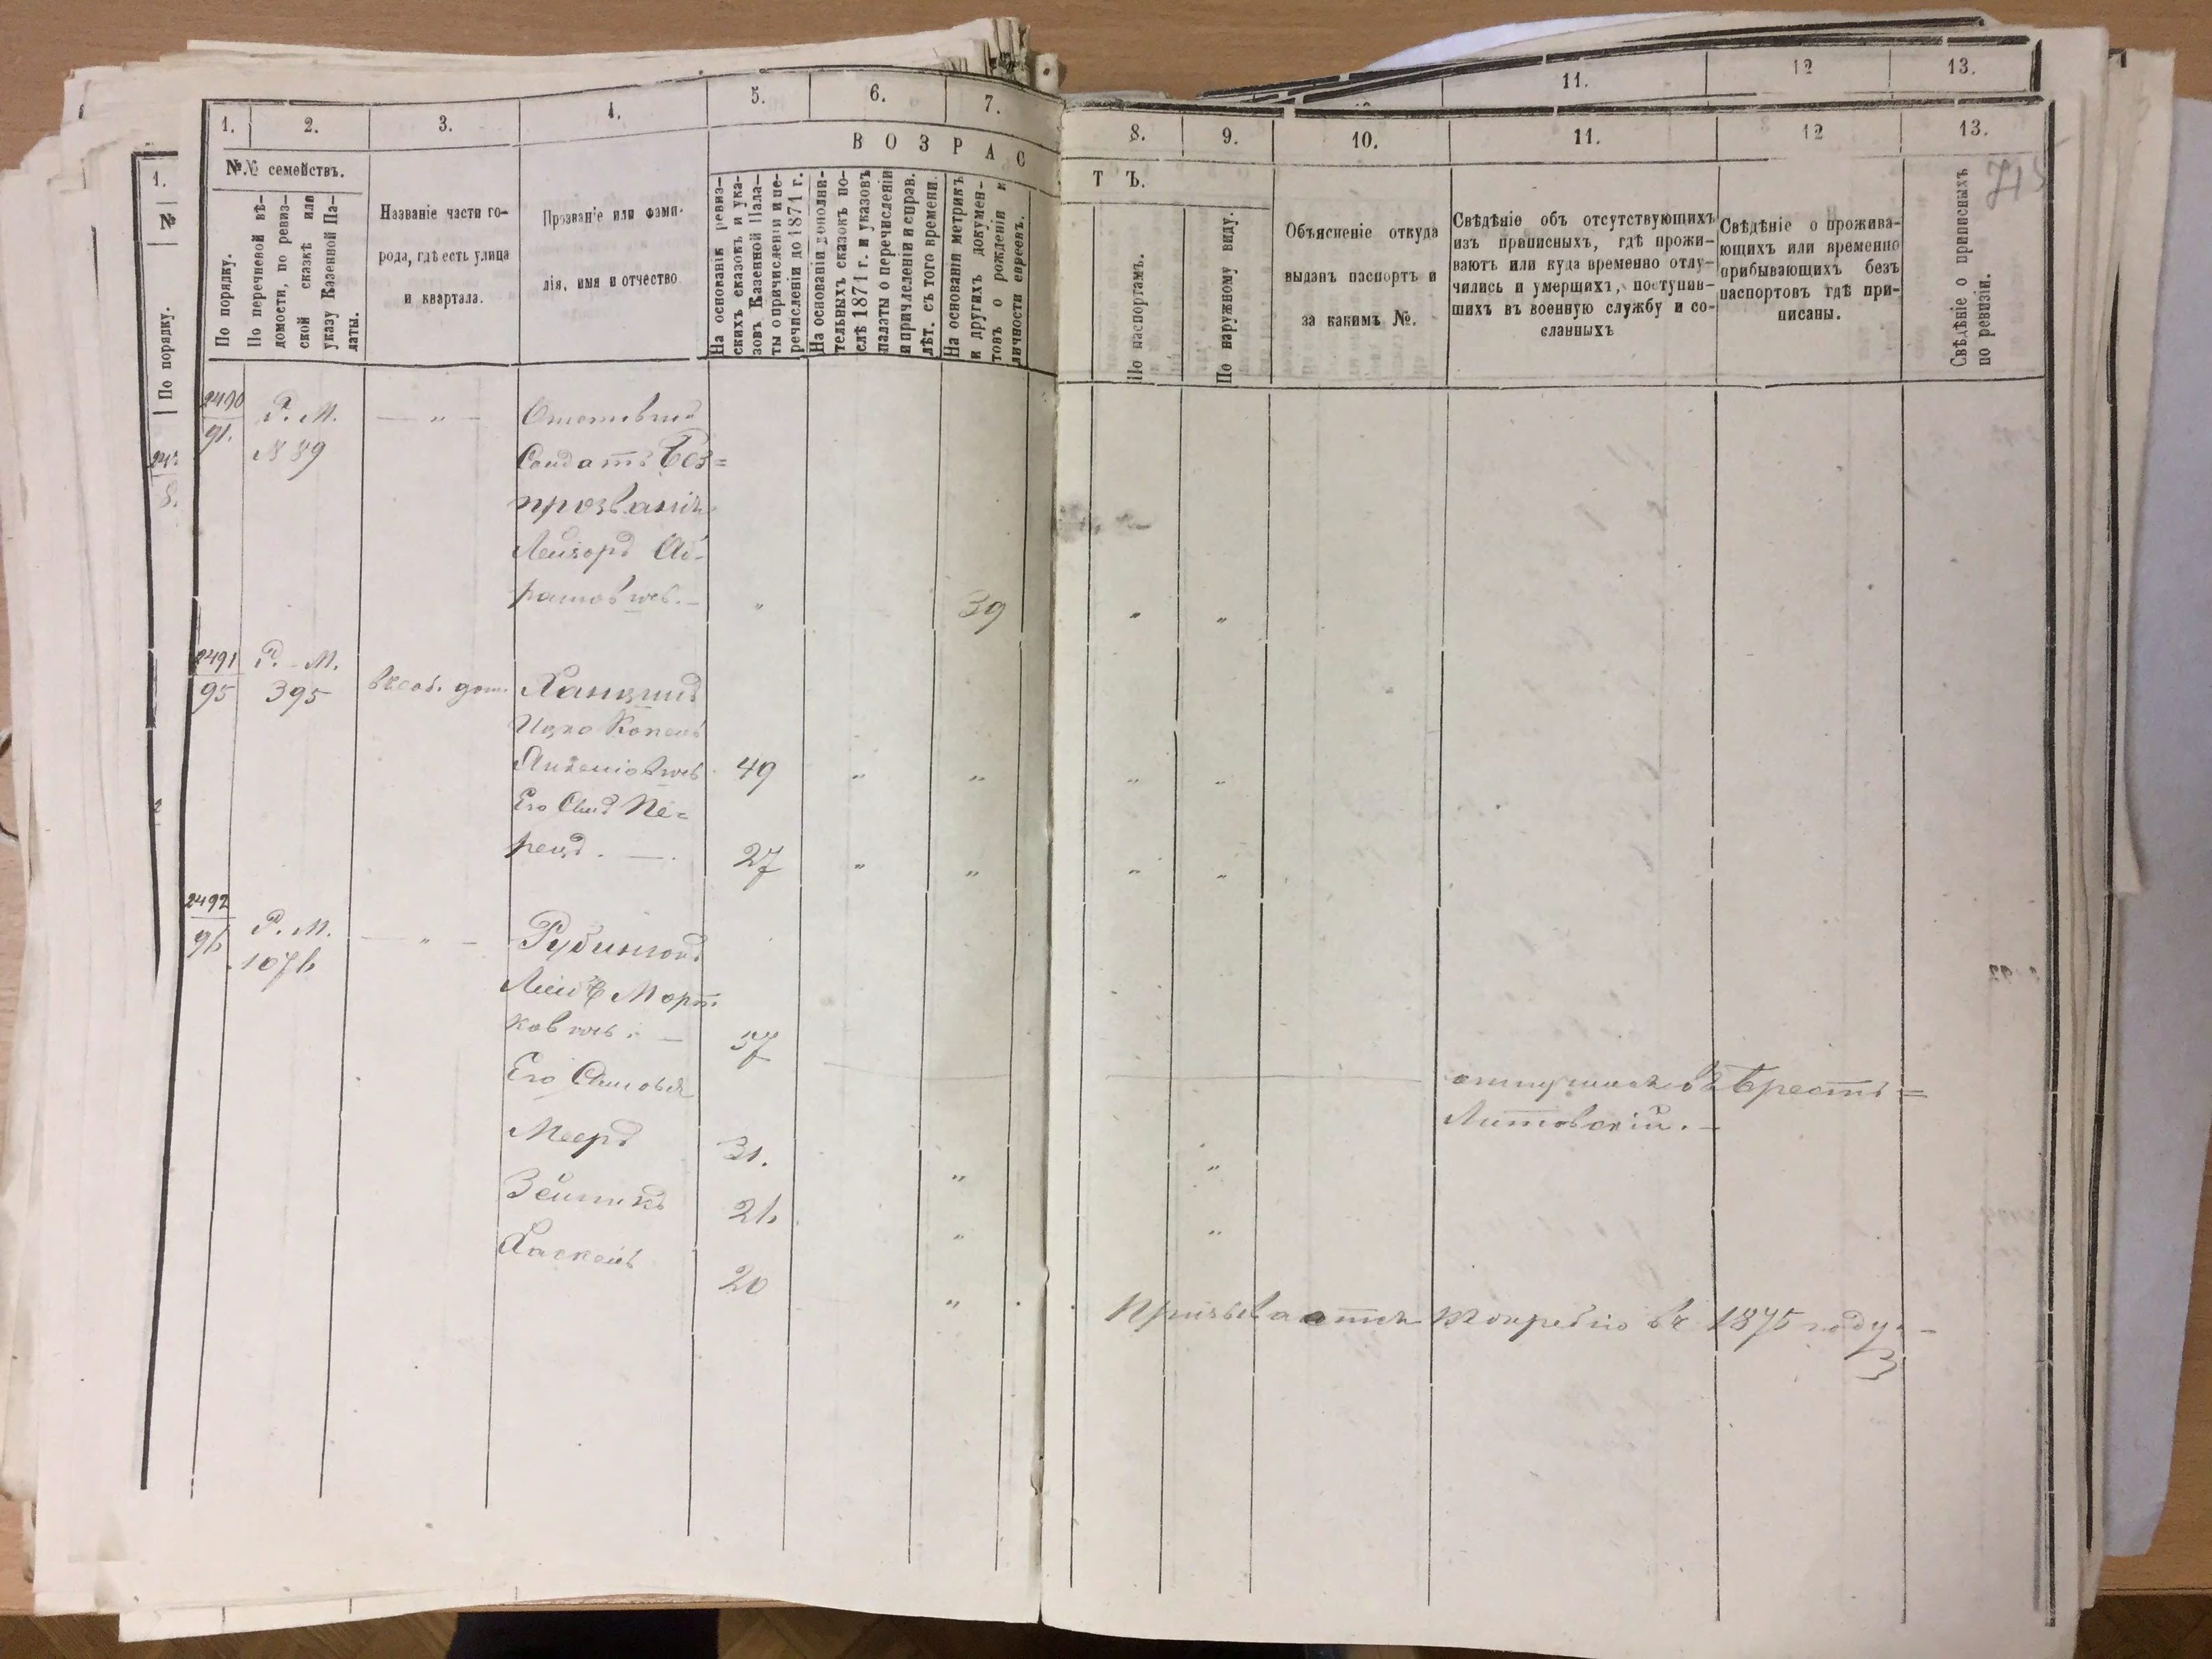 11.
12
13.
1.
2.
3.
4.
5.
6.
7.
8.
9.
10.
11.
12
13.
1.
№
По порядку.
№.№ семействъ.
В О З Р А С
Т Ъ.
По порядку.
По перечневой вѣ-
домости, по ревиз-
ской сказкѣ или
указу Казенной Па-
латы.
Названіе части го-
рода, гдѣ есть улица
и квартала.
Прозваніе или фами-
лія, имя и отчество
На основаніи ревиз-
скихъ сказокъ и ука-
зовъ Казенной Пала-
ты о причисленіи и пе-
речисленіи до 1871 г.
На основаніи дополни-
тельныхъ сказокъ по-
слѣ 1871 г. и указовъ
палаты о перечисленіи
и причлеленіи и справ.
лѣт. съ того времени.
На основаніи метрикъ
и другихъ докумен-
товъ о рожденіи и
личности евреевъ.
По паспортамъ.
По наружному виду.
Объясненіе откуда
выданъ паспортъ и
за какимъ №.
Свѣдѣніе объ отсутствующихъ
изъ приписныхъ, гдѣ прожи-
ваютъ или куда временно отлу-
чились и умершихъ, поступив-
шихъ въ военную службу и со-
сланныхъ
Свѣдѣніе о прожива-
ющихъ или временно
прибывающихъ безъ
паспортовъ гдѣ при-
писаны.
Свѣдѣніе о приписныхъ
по ревизіи.
2490
91.
Р. М.
№ 89
— „ —
Солдатъ Без=
прозванія
Лейзоръ Аб-
рамовичъ. —
„ 39 „ „
2491
95
Р. М.
395
Ицко Копель
49 „ „ „ „
Его Сынъ Пе=
рецъ. —.
27 „ „ „ „
2492
96
Р. М.
1076
— „ —
Лейб Морт
ковичъ. —
57
Его Сыновья
въ Брестъ=
Литовскій. —
Мееръ
31. „ „
26 „ „
Хаскель
20 „
Призывается къ жребію въ 1875 году. —